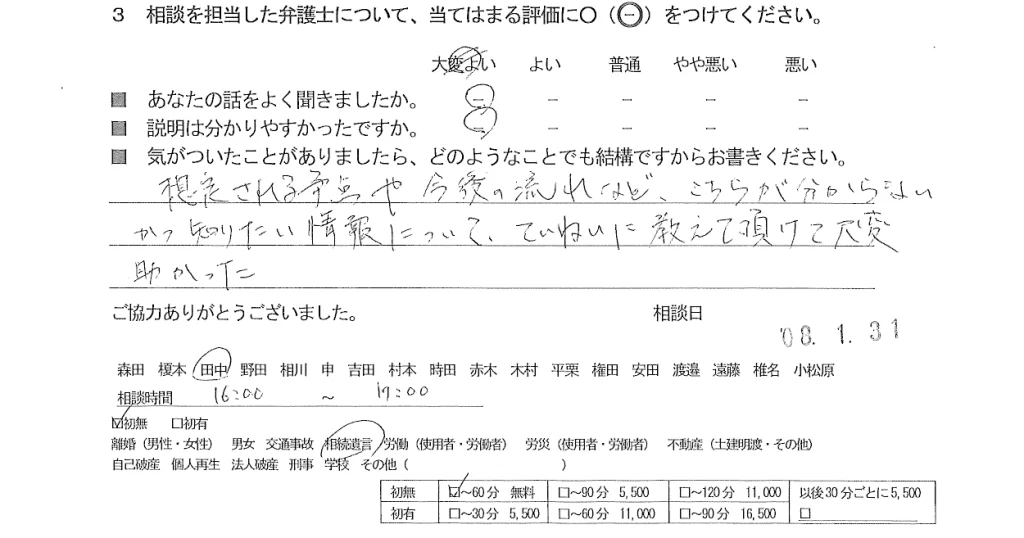 3 相談を担当した弁護士について、当てはまる評価に○（㊀）をつけてください。
大変よい よい 普通 やや悪い 悪い
■ あなたの話をよく聞きましたか。 － － － － －
■ 説明は分かりやすかったですか。 － － － － －
■ 気がついたことがありましたら、どのようなことでも結構ですからお書きください。
想定される争点や今後の流れなど、こちらが分からない
かつ知りたい情報について、ていねいに教えて頂けて大変
助かった
ご協力ありがとうございました。 相談日
'08. 1. 31
森田 榎本 田中 野田 相川 申 吉田 村本 時田 赤木 木村 平栗 権田 安田 渡邉 遠藤 椎名 小松原
相談時間 16:00 ～ 17:00
☑初無 □初有
離婚（男性・女性） 男女 交通事故 相続遺言 労働（使用者・労働者） 労災（使用者・労働者） 不動産（土建明渡・その他）
自己破産 個人再生 法人破産 刑事 学校 その他（ ）
初無 ☑～60分 無料 □～90分 5,500 □～120分 11,000 以後30分ごとに5,500
初有 □～30分 5,500 □～60分 11,000 □～90分 16,500 □